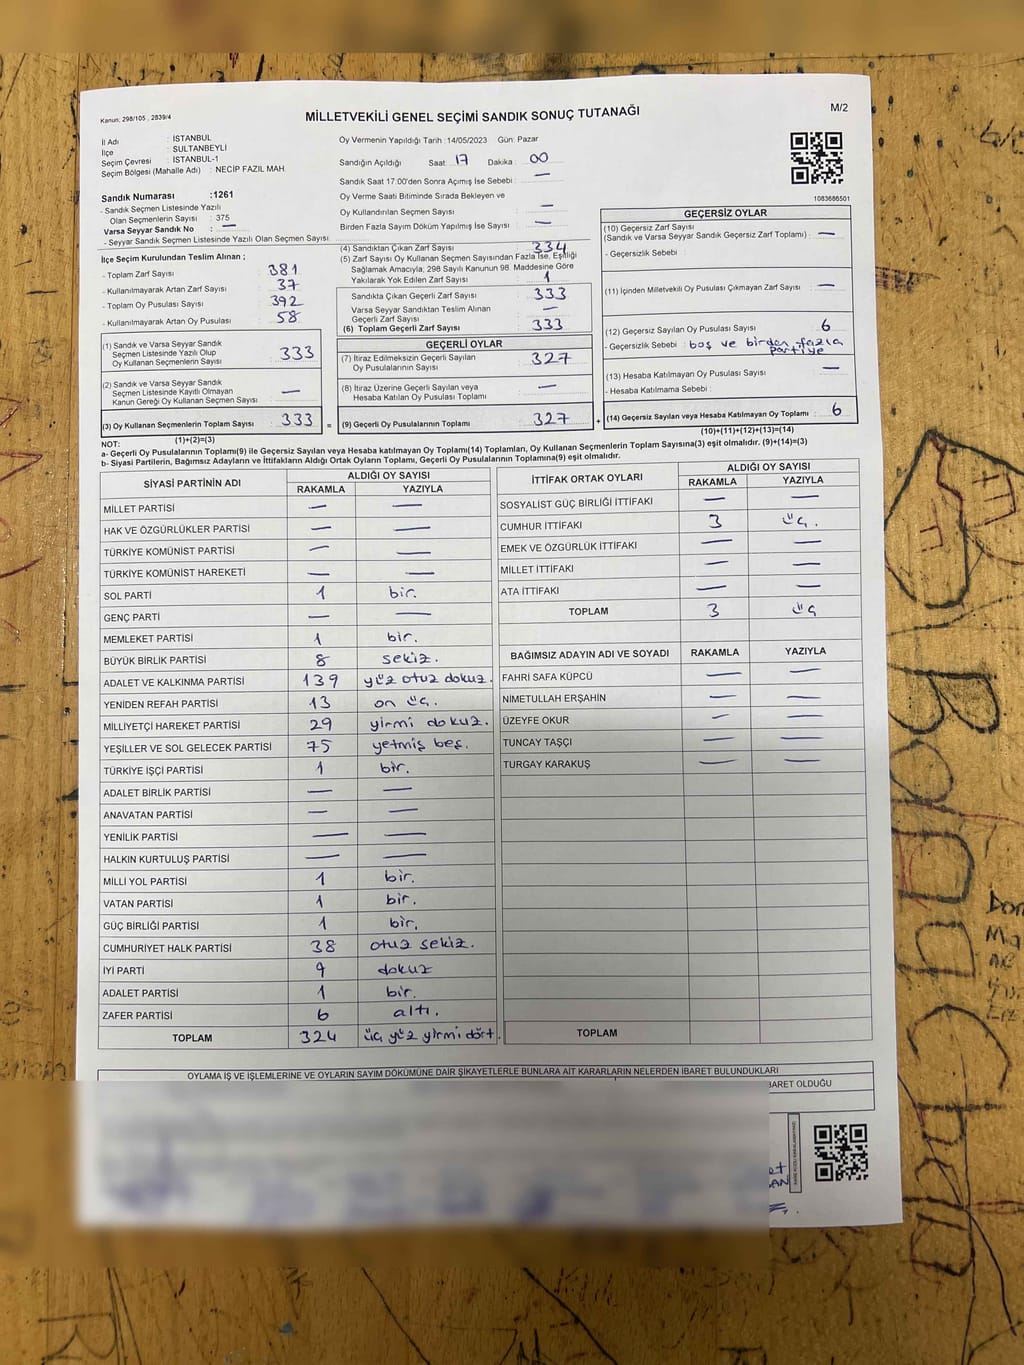 Kanun: 298/105 , 2839/4
MİLLETVEKİLİ GENEL SEÇİMİ SANDIK SONUÇ TUTANAĞI
M/2
İl Adı : İSTANBUL
İlçe : SULTANBEYLİ
Seçim Çevresi : İSTANBUL-1
Seçim Bölgesi (Mahalle Adı) : NECİP FAZIL MAH.
Sandık Numarası :1261
- Sandık Seçmen Listesinde Yazılı
Olan Seçmenlerin Sayısı : 375
Varsa Seyyar Sandık No : —
- Seyyar Sandık Seçmen Listesinde Yazılı Olan Seçmen Sayısı:
İlçe Seçim Kurulundan Teslim Alınan ;
- Toplam Zarf Sayısı : 381
- Kullanılmayarak Artan Zarf Sayısı : 37
- Toplam Oy Pusulası Sayısı : 392
- Kullanılmayarak Artan Oy Pusulası : 58
(1) Sandık ve Varsa Seyyar Sandık
Seçmen Listesinde Yazılı Olup
Oy Kullanan Seçmenlerin Sayısı : 333
(2) Sandık ve Varsa Seyyar Sandık
Seçmen Listesinde Kayıtlı Olmayan
Kanun Gereği Oy Kullanan Seçmen Sayısı : —
(3) Oy Kullanan Seçmenlerin Toplam Sayısı : 333 =
(1)+(2)=(3)
Oy Vermenin Yapıldığı Tarih :14/05/2023 Gün: Pazar
Sandığın Açıldığı Saat: 17 Dakika : 00
Sandık Saat 17.00'den Sonra Açmış İse Sebebi : —
Oy Verme Saati Bitiminde Sırada Bekleyen ve
Oy Kullandırılan Seçmen Sayısı : —
Birden Fazla Sayım Döküm Yapılmış İse Sayısı : —
(4) Sandıktan Çıkan Zarf Sayısı : 334
(5) Zarf Sayısı Oy Kullanan Seçmen Sayısından Fazla İse, Eşitliği
Sağlamak Amacıyla, 298 Sayılı Kanunun 98. Maddesine Göre
Yakılarak Yok Edilen Zarf Sayısı : 1
Sandıkta Çıkan Geçerli Zarf Sayısı : 333
Varsa Seyyar Sandıktan Teslim Alınan
Geçerli Zarf Sayısı : —
(6) Toplam Geçerli Zarf Sayısı : 333
GEÇERLİ OYLAR
(7) İtiraz Edilmeksizin Geçerli Sayılan
Oy Pusulalarının Sayısı : 327
(8) İtiraz Üzerine Geçerli Sayılan veya
Hesaba Katılan Oy Pusulası Toplamı : —
(9) Geçerli Oy Pusulalarının Toplamı : 327 +
1083686501
GEÇERSİZ OYLAR
(10) Geçersiz Zarf Sayısı
(Sandık ve Varsa Seyyar Sandık Geçersiz Zarf Toplamı) : —
- Geçersizlik Sebebi :
(11) İçinden Milletvekili Oy Pusulası Çıkmayan Zarf Sayısı : —
(12) Geçersiz Sayılan Oy Pusulası Sayısı : 6
- Geçersizlik Sebebi : boş ve birden fazla
partiye
(13) Hesaba Katılmayan Oy Pusulası Sayısı : —
- Hesaba Katılmama Sebebi :
(14) Geçersiz Sayılan veya Hesaba Katılmayan Oy Toplamı : 6
(10)+(11)+(12)+(13)=(14)
NOT:
a- Geçerli Oy Pusulalarının Toplamı(9) ile Geçersiz Sayılan veya Hesaba katılmayan Oy Toplamı(14) Toplamları, Oy Kullanan Seçmenlerin Toplam Sayısına(3) eşit olmalıdır. (9)+(14)=(3)
b- Siyasi Partilerin, Bağımsız Adayların ve İttifakların Aldığı Ortak Oyların Toplamı, Geçerli Oy Pusulalarının Toplamına(9) eşit olmalıdır.
SİYASİ PARTİNİN ADI ALDIĞI OY SAYISI
RAKAMLA YAZIYLA
MİLLET PARTİSİ — —
HAK VE ÖZGÜRLÜKLER PARTİSİ — —
TÜRKİYE KOMÜNİST PARTİSİ — —
TÜRKİYE KOMÜNİST HAREKETİ — —
SOL PARTİ 1 bir.
GENÇ PARTİ — —
MEMLEKET PARTİSİ 1 bir.
BÜYÜK BİRLİK PARTİSİ 8 sekiz.
ADALET VE KALKINMA PARTİSİ 139 yüz otuz dokuz.
YENİDEN REFAH PARTİSİ 13 on üç.
MİLLİYETÇİ HAREKET PARTİSİ 29 yirmi dokuz.
YEŞİLLER VE SOL GELECEK PARTİSİ 75 yetmiş beş.
TÜRKİYE İŞÇİ PARTİSİ 1 bir.
ADALET BİRLİK PARTİSİ — —
ANAVATAN PARTİSİ — —
YENİLİK PARTİSİ — —
HALKIN KURTULUŞ PARTİSİ — —
MİLLİ YOL PARTİSİ 1 bir.
VATAN PARTİSİ 1 bir.
GÜÇ BİRLİĞİ PARTİSİ 1 bir.
CUMHURİYET HALK PARTİSİ 38 otuz sekiz.
İYİ PARTİ 9 dokuz
ADALET PARTİSİ 1 bir.
ZAFER PARTİSİ 6 altı.
TOPLAM 324 üç yüz yirmi dört.
İTTİFAK ORTAK OYLARI ALDIĞI OY SAYISI
RAKAMLA YAZIYLA
SOSYALİST GÜÇ BİRLİĞİ İTTİFAKI — —
CUMHUR İTTİFAKI 3 üç.
EMEK VE ÖZGÜRLÜK İTTİFAKI — —
MİLLET İTTİFAKI — —
ATA İTTİFAKI — —
TOPLAM 3 üç
BAĞIMSIZ ADAYIN ADI VE SOYADI RAKAMLA YAZIYLA
FAHRİ SAFA KÜPCÜ — —
NİMETULLAH ERŞAHİN — —
ÜZEYFE OKUR — —
TUNCAY TAŞÇI — —
TURGAY KARAKUŞ — —
TOPLAM
OYLAMA İŞ VE İŞLEMLERİNE VE OYLARIN SAYIM DÖKÜMÜNE DAİR ŞİKAYETLERLE BUNLARA AİT KARARLARIN NELERDEN İBARET BULUNDUKLARI
İBARET OLDUĞU